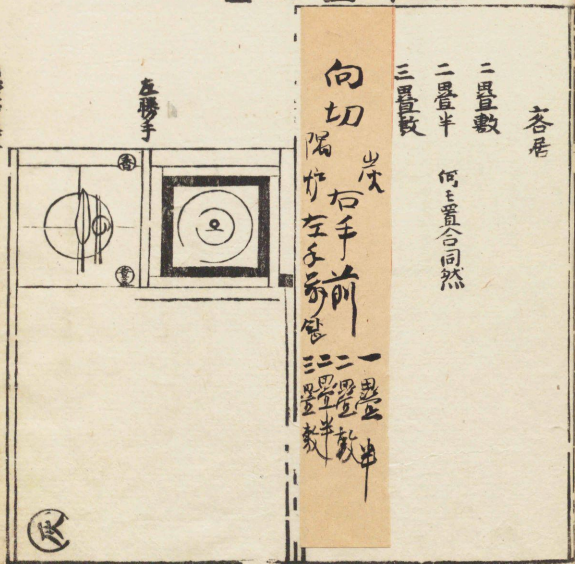 客居
二畳敷
二畳半 何モ置合同然
三畳敷
向切
炭右手前
隅炉左手前
一畳半
二畳敷
二畳半
三畳敷
左勝手
香
灰